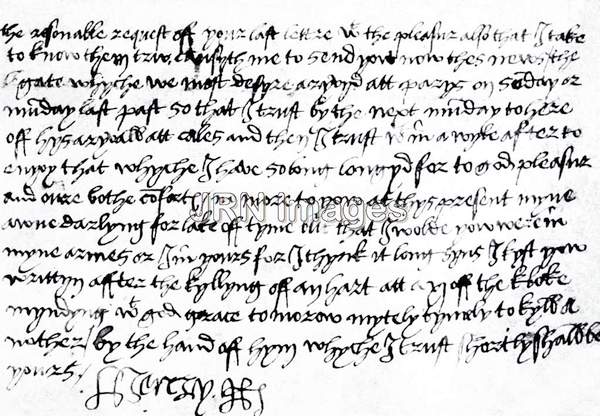 the resonable request off your last lettre wt the pleasur also that I take
to know them trw causyth me to send yow now thes news the
legate whyche we most desyre aryvyd att parys on sonday or
munday last past so that I trust by the next munday to here
off hys aryvall att cales and then I trust wtin a wyle after to
enyoy that whyche I have so long longyd for to god pleasur
and oure bothe cofort / no more to yow at thys present myne
awne darlyng for lake off tyme but that I wolde yow were in
myne armes or I in yours for I thynk it long syns I kyst yow
writtyn affter the kyllyng off an hart att a xj off the kloke
myndyng wt god grace to morow mytely tymely to kyll a
nother / by the hand off hym whyche I trust shortly shall be
yours /
Henry R
JRN Images